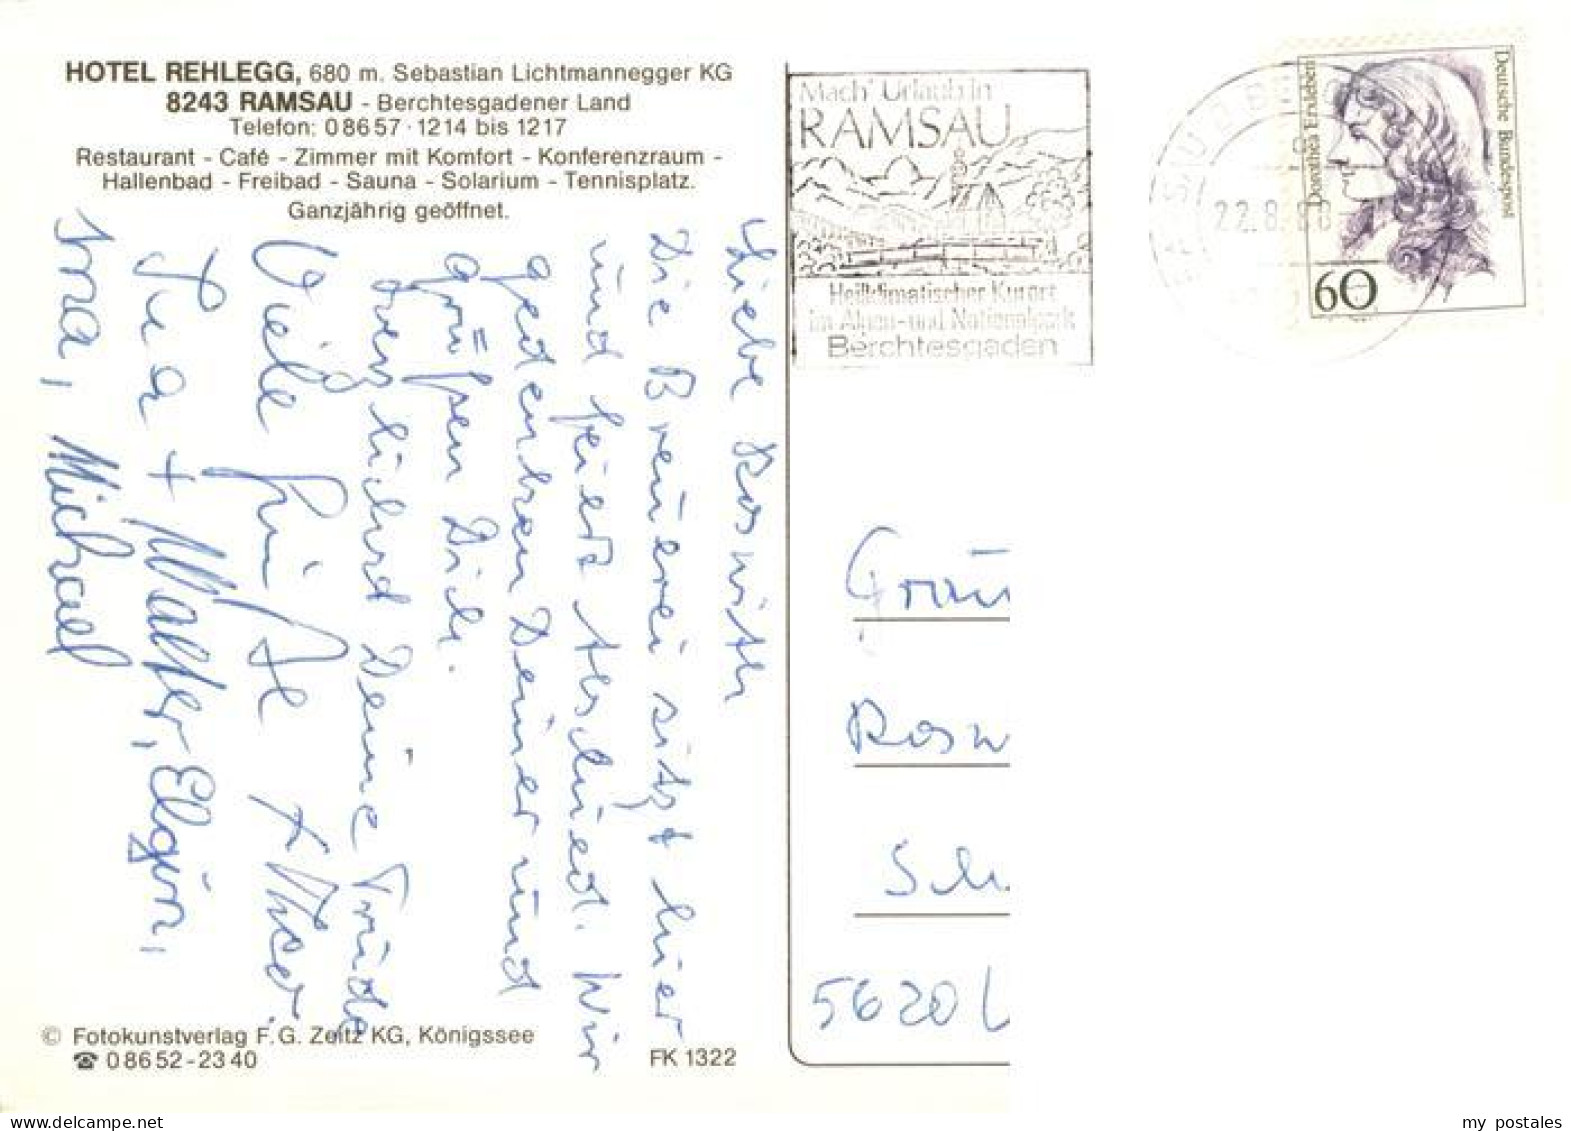 HOTEL REHLEGG, 680 m. Sebastian Lichtmannegger KG
8243 RAMSAU - Berchtesgadener Land
Telefon: 08657 · 1214 bis 1217
Restaurant - Café - Zimmer mit Komfort - Konferenzraum -
Hallenbad - Freibad - Sauna - Solarium - Tennisplatz.
Ganzjährig geöffnet.
Liebe Roswith
Die Breuerei sitzt hier
und feiert Abschied. Wir
gedenken Deiner und
grüßen Dich.
Herzlichst Deine Trude
Viele Grüße
+ Walter, Elgin,
Michael
© Fotokunstverlag F. G. Zeitz KG, Königssee
☎ 08652-2340
FK 1322
Mach' Urlaub in
RAMSAU
Heilklimatischer Kurort
im Alpen- und Nationalpark
Berchtesgaden
22.8.88
Dorothea Erxleben
Deutsche Bundespost
60
Frau
Rosw
Sch
5620 
my postales